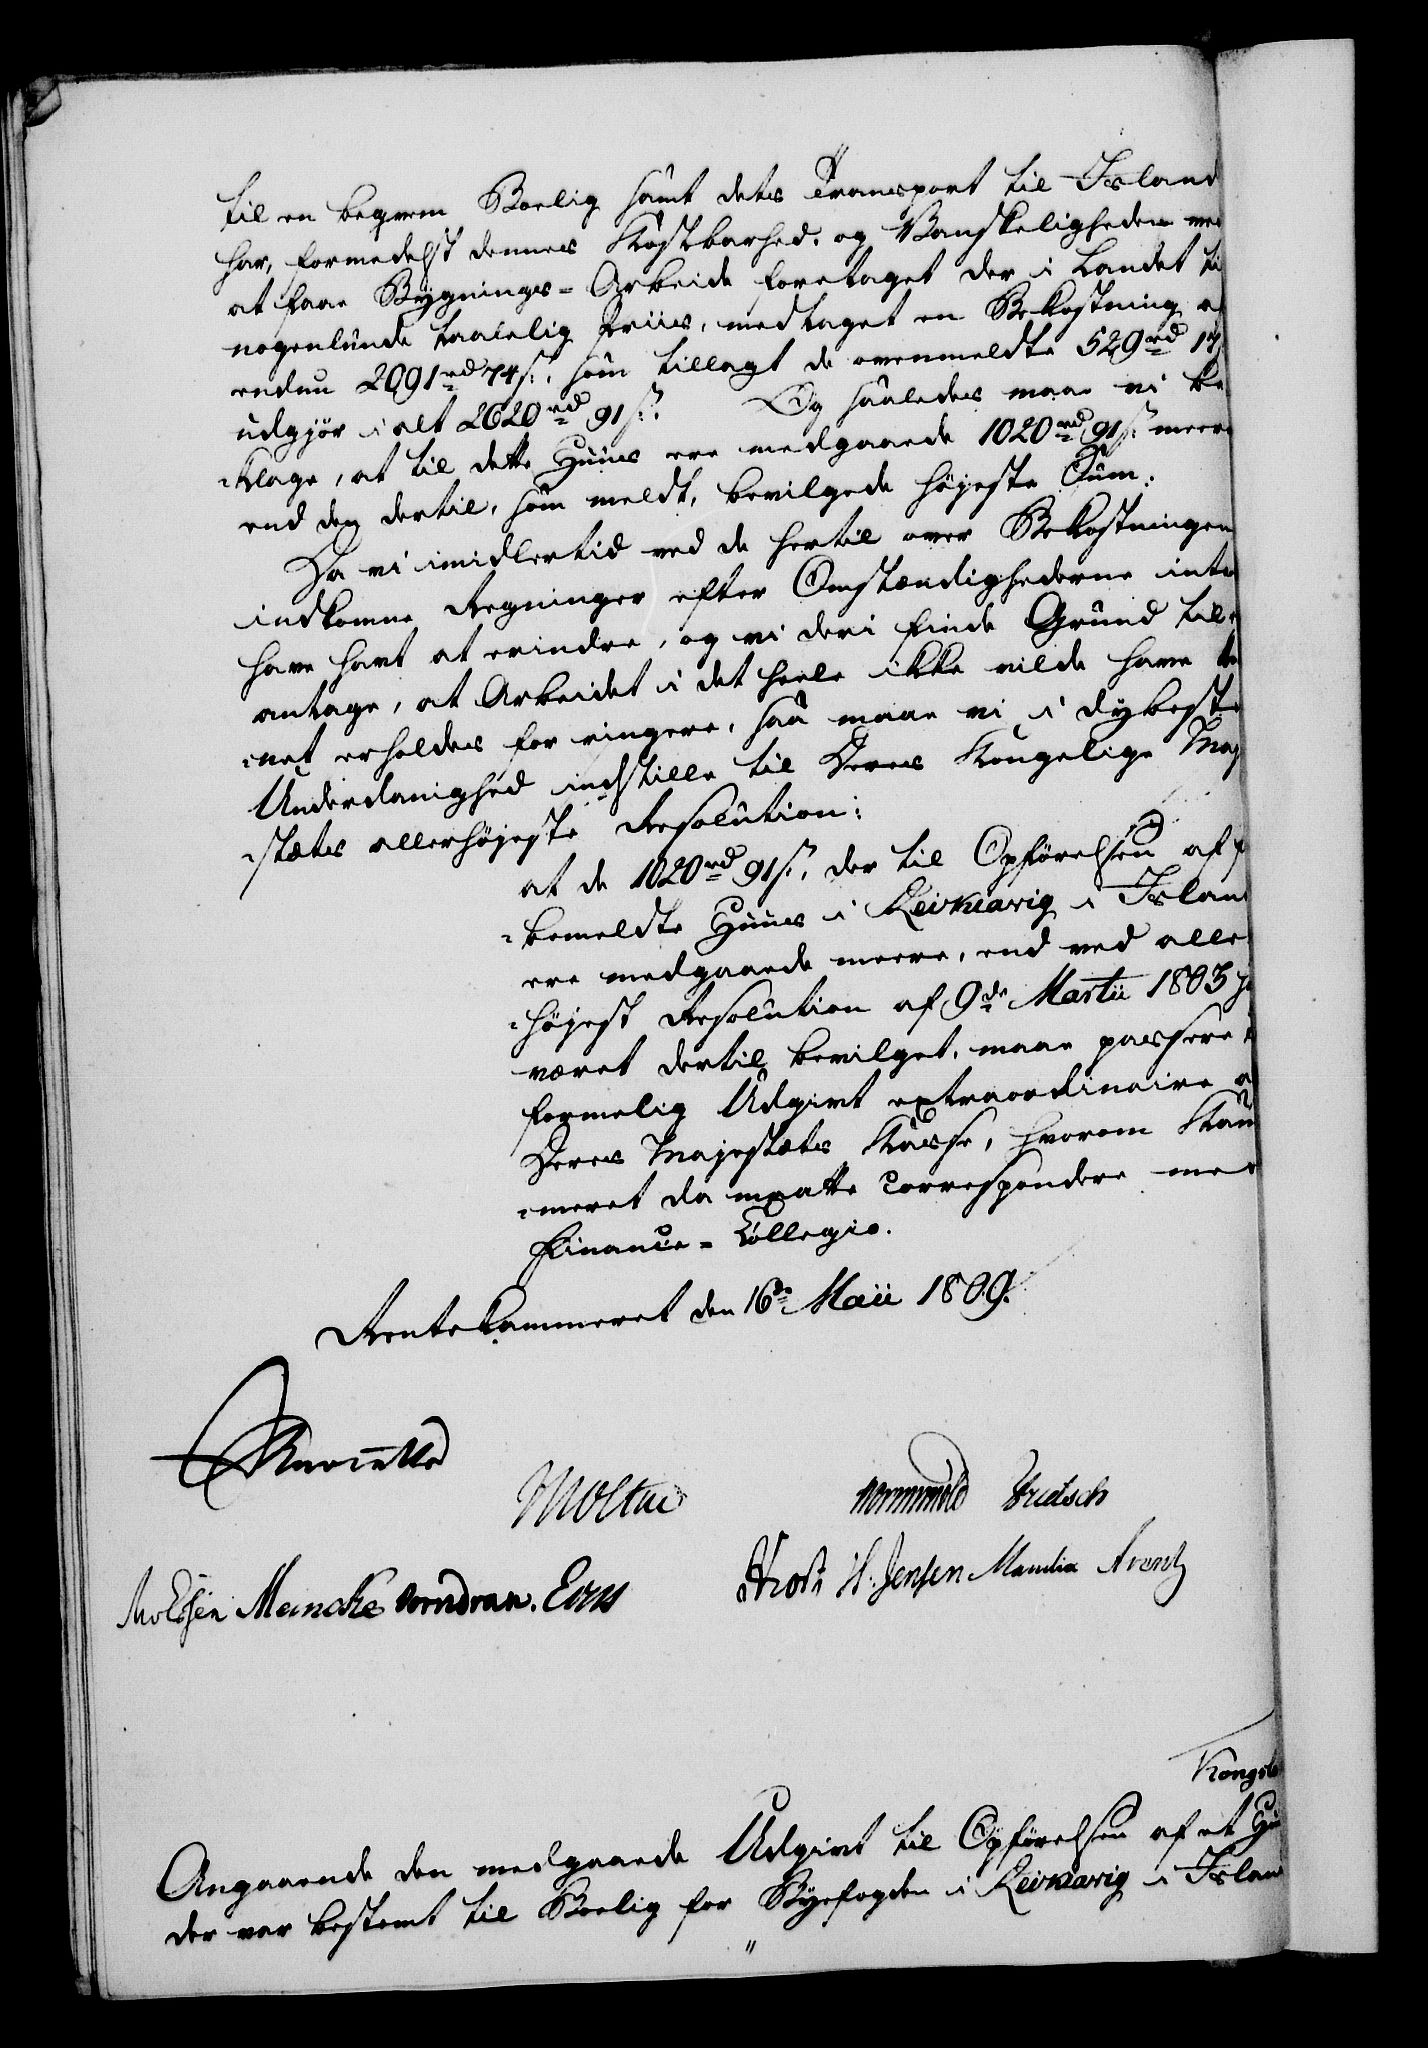 til en beqvem Boelig samt dets Transport til Island
har, formedelst dennes Kostbarhed, og Vanskeligheden ved
at faae Bygnings-Arbeide foretaget der i Landet til
nogenlunde taalelig Priis, medtaget en Bekostning af
endnu 2091 rd 74 s., som tillagt de ovenmeldte 529 rd 17
udgjør i alt 2620 rd 91 s. Og saaledes maae vi be
-klage, at til dette Huus ere medgaaede 1020 rd 91 s. meere
end den dertil, som meldt, bevilgede højeste Sum.
Da vi imidlertid ved de hertil over Bekostningen
indkomne Regninger efter Omstændighederne intet
have havt at erindre, og vi deri finde Grund til at
antage, at Arbeidet i det heele ikke vilde have
-net erholdes for ringere, saa maae vi i dybeste
Underdanighed indstille til Deres Kongelige Maj
-stæts allerhøjeste Resolution:
at de 1020 rd 91 s., der til Opførelsen af
-bemeldte Huus i Reikiavig i Island
ere medgaaede meere, end ved aller
-højest Resolution af 9de Martii 1803
været dertil bevilget, maae passere til
formelig Udgivt extraordinaire af
Deres Majestæts Kasse, hvorom Kam
-meret da maatte correspondere med
Finance-Collegio.
Rentekammeret den 16de Maii 1809.
Reventlow
Moltke Wormskiold Fridsch
Meincke Vorndran. H. Jensen Arentz
Kongel
Angaaende den medgaaede Udgivt til Opførelsen af et Hu
der var bestemt til Boelig for Byefogden i Reikiavig i Island